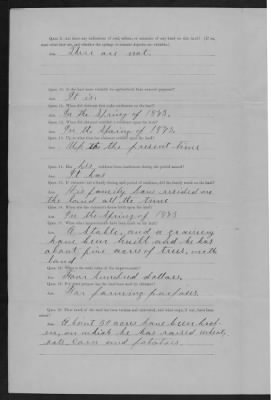 Ques. 9. Are there any indications of coal, salines, or minerals of any kind on this land? (If so,
state what they are, and whether the springs or mineral deposits are valuable.)
Ans. There are not.
Ques. 10. Is the land more valuable for agricultural than mineral purposes?
Ans. It is.
Ques. 11. When did claimant first make settlement on the land?
Ans. In the Spring of 1873.
Ques. 12. When did claimant establish a residence upon the land?
Ans. In the Spring of 1873.
Ques. 13. Up to what time has claimant resided upon the land?
Ans. Up to the present time
Ques. 14. Has his residence been continuous during the period named?
Ans. It has
Ans. His family have resided on
the land all the time
Ans. In the Spring of 1873
Ans. A Stable, and a granary
have been built and he has
about five acres of trees, on the
land
Ques. 18. What is the total value of the improvements?
Ans. Four hundred dollars.
Ques. 19. For what purpose has the land been used by claimant?
Ans. For farming purposes.
Ques. 20. How much of the land has been broken and cultivated, and what crops, if any, have been
raised?
Ans. About 50 acres have been brok-
en, on which he has raised wheat,
oats, corn and potatoes.